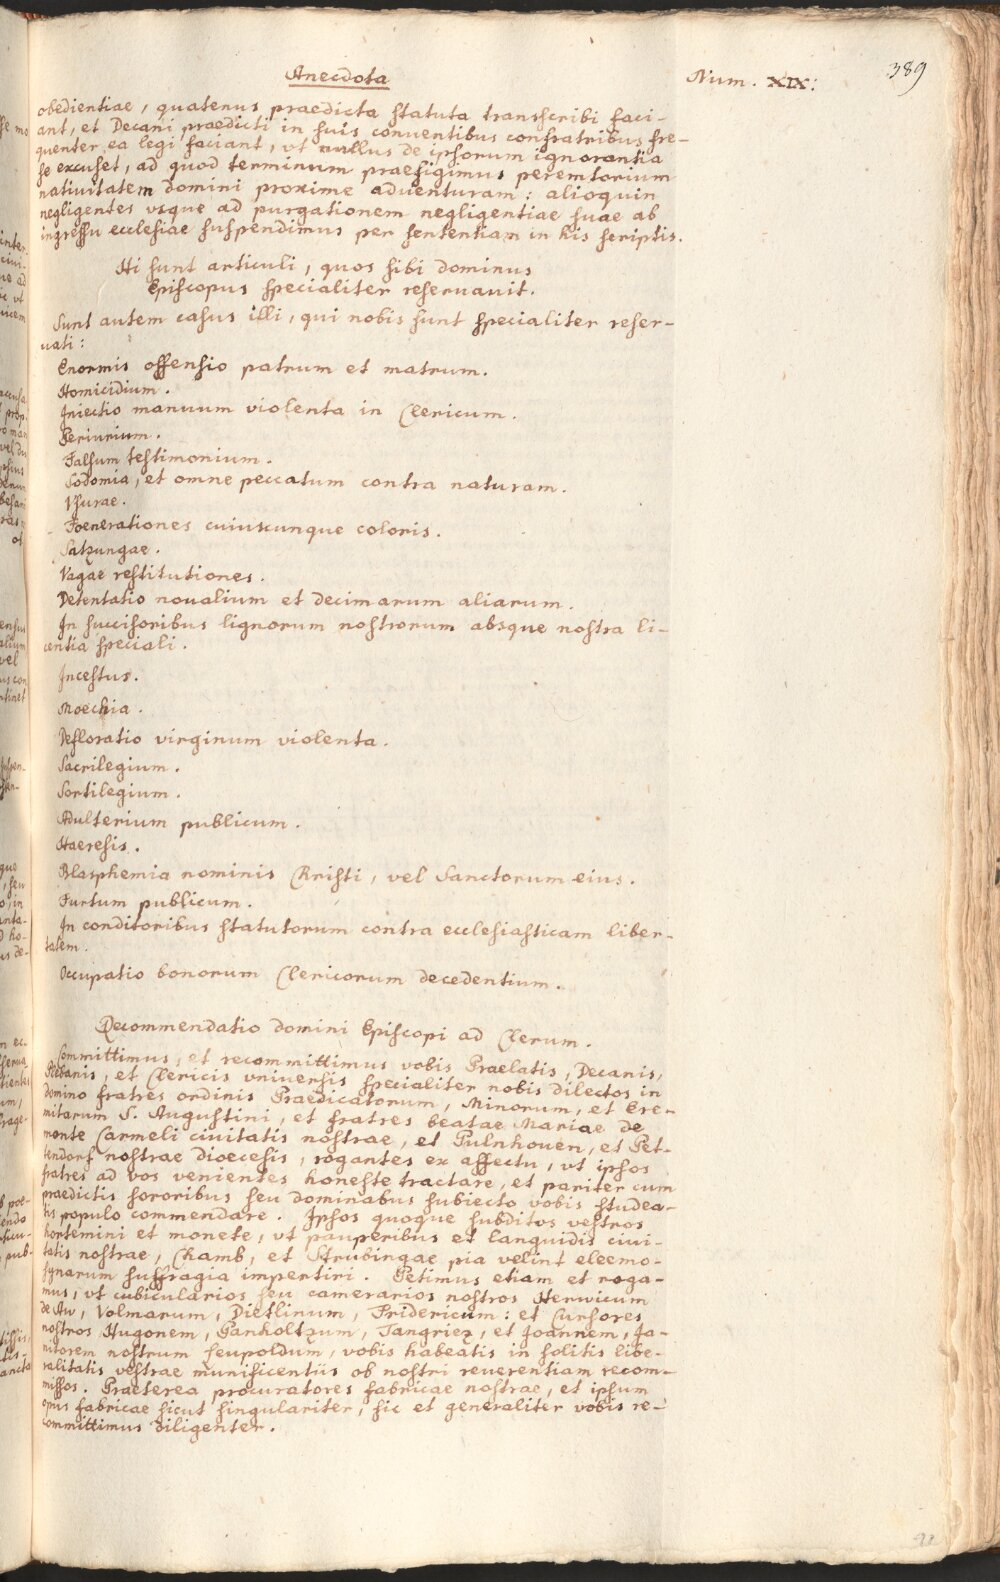 Anecdota
Num. XIX:
389
obedientiae, quatenus praedicta statuta transscribi faci-
ant, et Decani praedicti in suis conventibus confratribus fre-
quenter ea legi faciant, vt nullus de ipsorum ignorantia
se excuset, ad quod terminum praefigimus peremtorium
natiuitatem domini proxime aduenturam: alioquin
negligentes vsque ad purgationem negligentiae suae ab
ingressu ecclesiae suspendimus per sententiam in his scriptis.
Hi sunt articuli, quos sibi dominus
Episcopus specialiter reseruauit.
Sunt autem casus illi, qui nobis sunt specialiter reser-
uati:
Enormis offensio patrum et matrum.
Homicidium.
Iniectio manuum violenta in Clericum.
Periurium.
Falsum testimonium.
Sodomia, et omne peccatum contra naturam.
Vsurae.
Foenerationes cuiuscunque coloris.
Satzungae.
Vagae restitutiones.
Detentatio noualium et decimarum aliarum.
In succisoribus lignorum nostrorum absque nostra li-
centia speciali.
Incestus.
Moechia.
Defloratio virginum violenta.
Sacrilegium.
Sortilegium.
Adulterium publicum.
Haeresis.
Blasphemia nominis Christi, vel Sanctorum eius.
Furtum publicum.
In conditoribus statutorum contra ecclesiasticam liber-
tatem.
Occupatio bonorum Clericorum decedentium.
Recommendatio domini Episcopi ad Clerum.
Committimus, et recommittimus vobis Praelatis, Decanis,
Plebanis, et Clericis vniuersis specialiter nobis dilectos in
domino fratres ordinis Praedicatorum, Minorum, et Ere-
mitarum S. Augustini, et fratres beatae Mariae de
monte Carmeli ciuitatis nostrae, et Pulnhouen, et Pet-
tendorf nostrae dioecesis, rogantes ex affectu, vt ipsos
fratres ad vos venientes honeste tractare, et pariter cum
praedictis sororibus seu dominabus subiecto vobis studea-
tis populo commendare. Ipsos quoque subditos vestros
hortemini et monete, vt pauperibus et languidis ciui-
tatis nostrae, Chamb, et Strubingae pia velint eleemo-
synarum suffragia impertiri. Petimus etiam et roga-
mus, vt cubicularios seu camerarios nostros Herwicum
de Aw, Volmarum, Dietlinum, Fridericum: et Cursores
nostros Hugonem, Panholtzum, Tangriez, et Joannem, Ja-
nitorem nostrum Leupoldum, vobis habeatis in solitis libe-
ralitatis vestrae munificentiis ob nostri reuerentiam recom-
missos. Praeterea procuratores fabricae nostrae, et ipsum
opus fabricae sicut singulariter, sic et generaliter vobis re-
committimus diligenter.